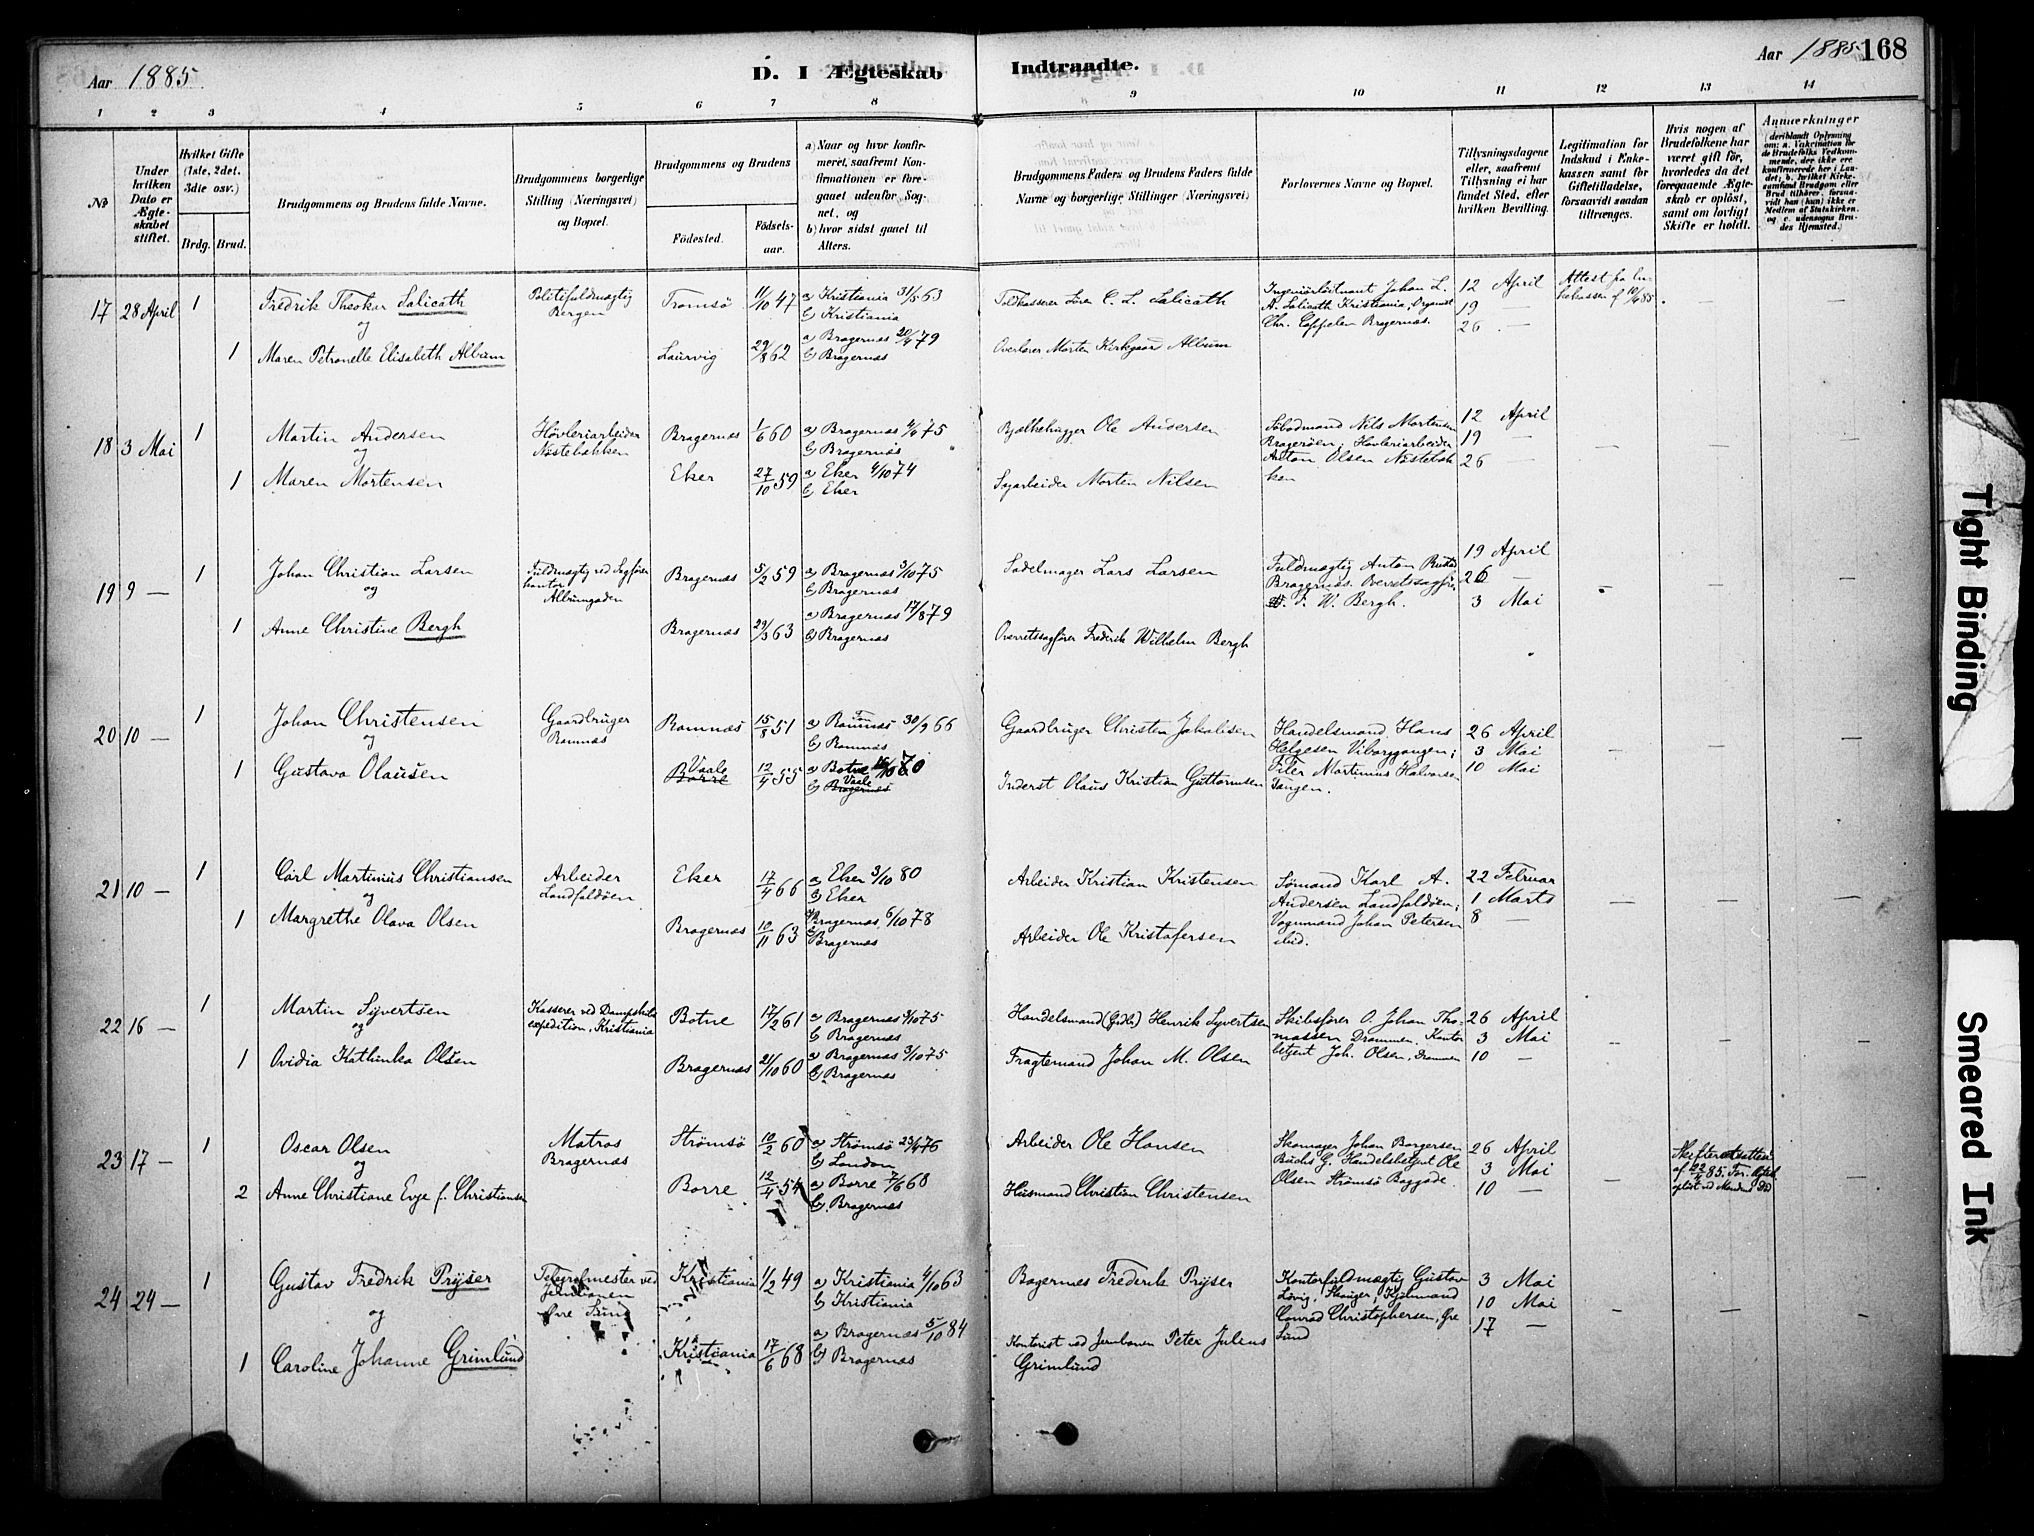 Aar 1885.
D. I Ægteskab Indtraadte.
Aar 1885 168
1 2 3 4 5 6 7 8 9 10 11 12 13 14
№
Under hvilken Dato er Ægteskabet stiftet.
Hvilket Gifte (1ste, 2det, 3die osv.)
Brdg. Brud.
Brudgommens og Brudens fulde Navne.
Brudgommens borgerlige Stilling (Næringsvei) og Bopæl.
Brudgommens og Brudens
Fødested. Fødselsaar.
a) Naar og hvor konfirmeret, saafremt Konfirmationen er foregaaet udenfor Sognet, og
b) hvor sidst gaaet til Alters.
Brudgommens Faders og Brudens Faders fulde Navne og borgerlige Stillinger (Næringsvei)
Forlovernes Navne og Bopæl.
Tillysningsdagene eller, saafremt Tillysning ei har fundet Sted, efter hvilken Bevilling.
Legitimation for Indskud i Enkekassen samt for Giftetilladelse, forsaavidt saadan tiltrænges.
Hvis nogen af Brudefolkene har været gift før, hvorledes da det foregaaende Ægteskab er opløst, samt om lovligt Skifte er holdt.
Anmærkninger (deriblandt Oplysning om: a. Vakcination for de Brudefolks Vedkommende, der ikke ere konfirmerede her i Landet; b. hvilket Kirkesamfund Brudgom eller Brud tilhører, forsaavidt han (hun) ikke er Medlem af Statskirken, og c. udensogns Brudes Hjemsted.)
17 28 April 1 Fredrik Theokar Salicath Politifuldmægtig Bergen Tromsö 11/10 47 a) Kristiania 31/5 63 b) Kristiania Toldkasserer Sören C. L. Salicath
og
1 Maren Petronelle Elisabeth Album Laurvig 29/8 62 a) Bragernæs 20/4 79 b) Bragernæs Overlærer Morten Kirkgaard Album
Ingeniörlöitnant Johan L. A. Salicath Kristiania, Organist Chr. Cappelen Bragernæs.
12 April 19 — 26 —
Attest fra Enkekassen af 10/4 85.
18 3 Mai 1 Martin Andersen Høvleriarbeider Næstebakken Bragernæs 1/6 60 a) Bragernæs 4/4 75 b) Bragernæs Bjælkehugger Ole Andersen
og
1 Maren Mortensen Eker 27/10 59 a) Eker 4/10 74 b) Eker Sagarbeider Morten Nilsen
Nils Mortensen Bragerøen; Høvleriarbeider Anton Olsen Næstebakken
12 April 19 — 26 —
19 9 — 1 Johan Christian Larsen Fuldmægtig ved Sagfører kontor Albumgaden Bragernæs 5/2 59 a) Bragernæs 3/10 75 b) Bragernæs Sadelmager Lars Larsen
og
1 Anne Christine Bergh Bragernæs 29/3 63 a) Bragernæs 17/8 79 b) Bragernæs Overretssagfører Frederik Wilhelm Bergh
Fuldmægtig Anton Rustad Bragernæs. Overretssagfører F. W. Bergh.
19 April 26 — 3 Mai
20 10 — 1 Johan Christensen Gaardbruger Ramnæs Ramnæs 15/8 51 a) Ramnæs 30/9 66 b) Ramnæs Gaardbruger Christen Jakobsen
og
1 Gustava Olausen Vaale Borre 12/4 55 a) Botne b) Vaale Bragernæs Inderst Olaus Kristian Guttormsen
Handelsmand Hans Helgesen Viborggangen; Filer Martinius Halvorsen Tangen.
26 April 3 Mai 10 Mai
21 10 — 1 Carl Martinius Christiansen Arbeider Landfaldøen Eker 17/4 66 a) Eker 3/10 80 b) Eker Arbeider Kristian Kristensen
og
1 Margrethe Olava Olsen Bragernæs 10/11 63 a) Bragernæs 6/10 78 b) Bragernæs Arbeider Ole Kristofersen
Sømand Karl A. Andersen Landfaldøen; Vognmand Johan Petersen ibid.
22 Februar 1 Marts 8 —
22 16 — 1 Martin Syvertsen Kasserer ved Dampskibs expedition, Kristiania Botne 17/2 61 a) Bragernæs 3/10 75 b) Bragernæs Handelsmand Henrik Syvertsen
og
1 Ovidia Kathinka Olsen Bragernæs 21/10 60 a) Bragernæs 3/10 75 b) Bragernæs Fragtemand Johan M. Olsen
Skibsfører O. Johan Thomassen Drammen. Kontorbetjent Joh. Olsen, Drammen
26 April 3 Mai 10 —
23 17 — 1 Oscar Olsen Matros Bragernæs Strømsö 10/2 60 a) Strømsö 23/4 76 b) London Arbeider Ole Hansen
og
2 Anne Christiane Evje f. Christiansen Borre 12/4 54 a) Borre 7/6 68 b) Bragernæs Husmand Christian Christensen
Skomager Johan Borgersen Buchs G. Handelsbetjent Ole Olsen Strømsö Baggade.
26 April 3 Mai 10 —
Skifteattest af 22/4 85. For. Ægtsk. opløst ved Mandens Død
24 24 — 1 Gustav Fredrik Prÿser Telegrafmester ved Jernbanen Øvre Sund Kristiania 1/2 49 a) Kristiania 4/10 63 b) Kristiania Frederik Prÿser
og
1 Caroline Johanne Grimlund Kristiania 17/6 68 a) Bragernæs 5/10 84 b) Bragernæs Kontorist ved Jernbanen Peter Julius Grimlund
Kontorfuldmægtig Gustav Conrad Christophersen, Øre Sund
3 Mai 10 Mai 17 —
Tight Binding
Smeared Ink